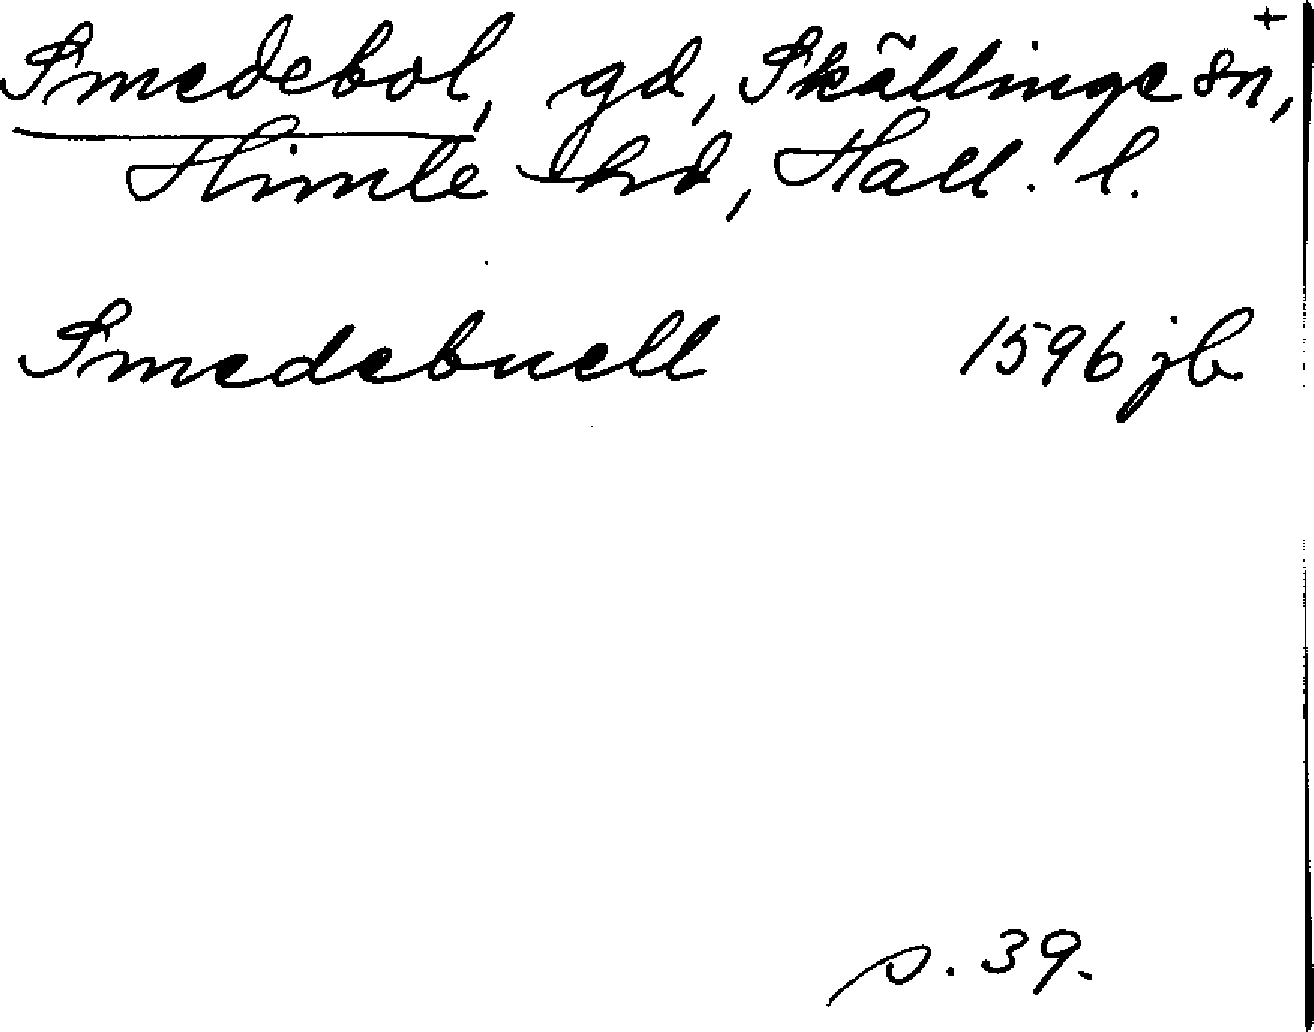 Smedebol, gd, Skällinge sn, +
Himle hd, Hall. l.
Smedebuell 1596 jb.
s. 39.